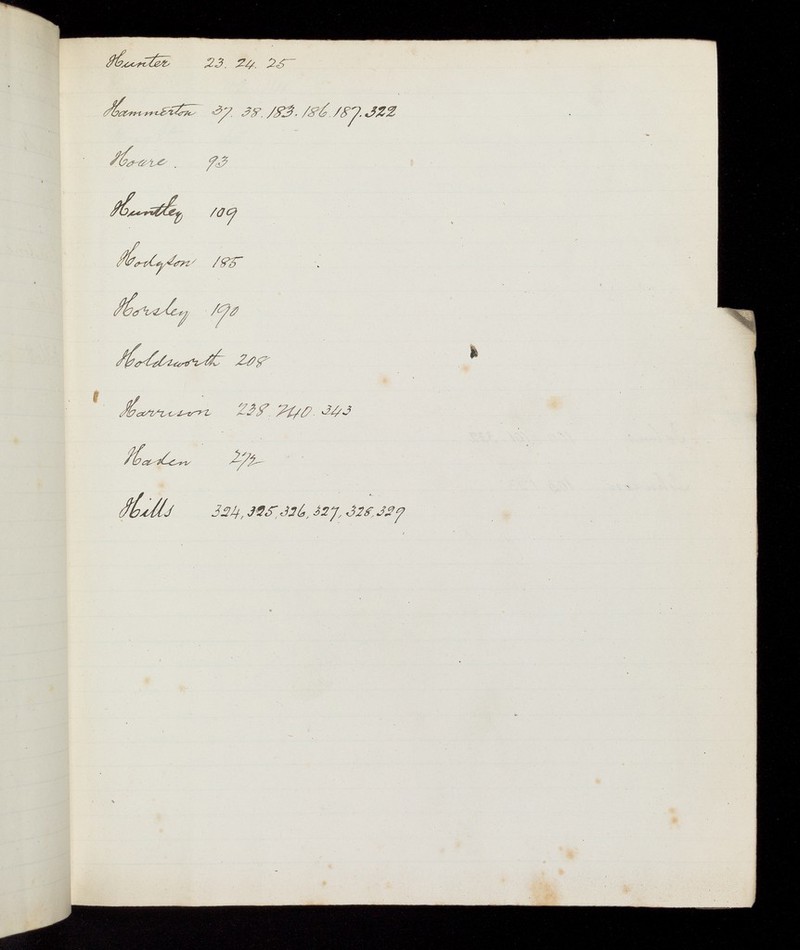 Hunter 23. 24. 25
Hammerton 37. 38. 183. 186. 187. 322
Hoare. 93
Huntley 109
Hodgson 185
Horsley 190
Holdsworth 208
Harrison 238. 240. 343
Haden 272
Hills 324, 325, 326, 327, 328, 329